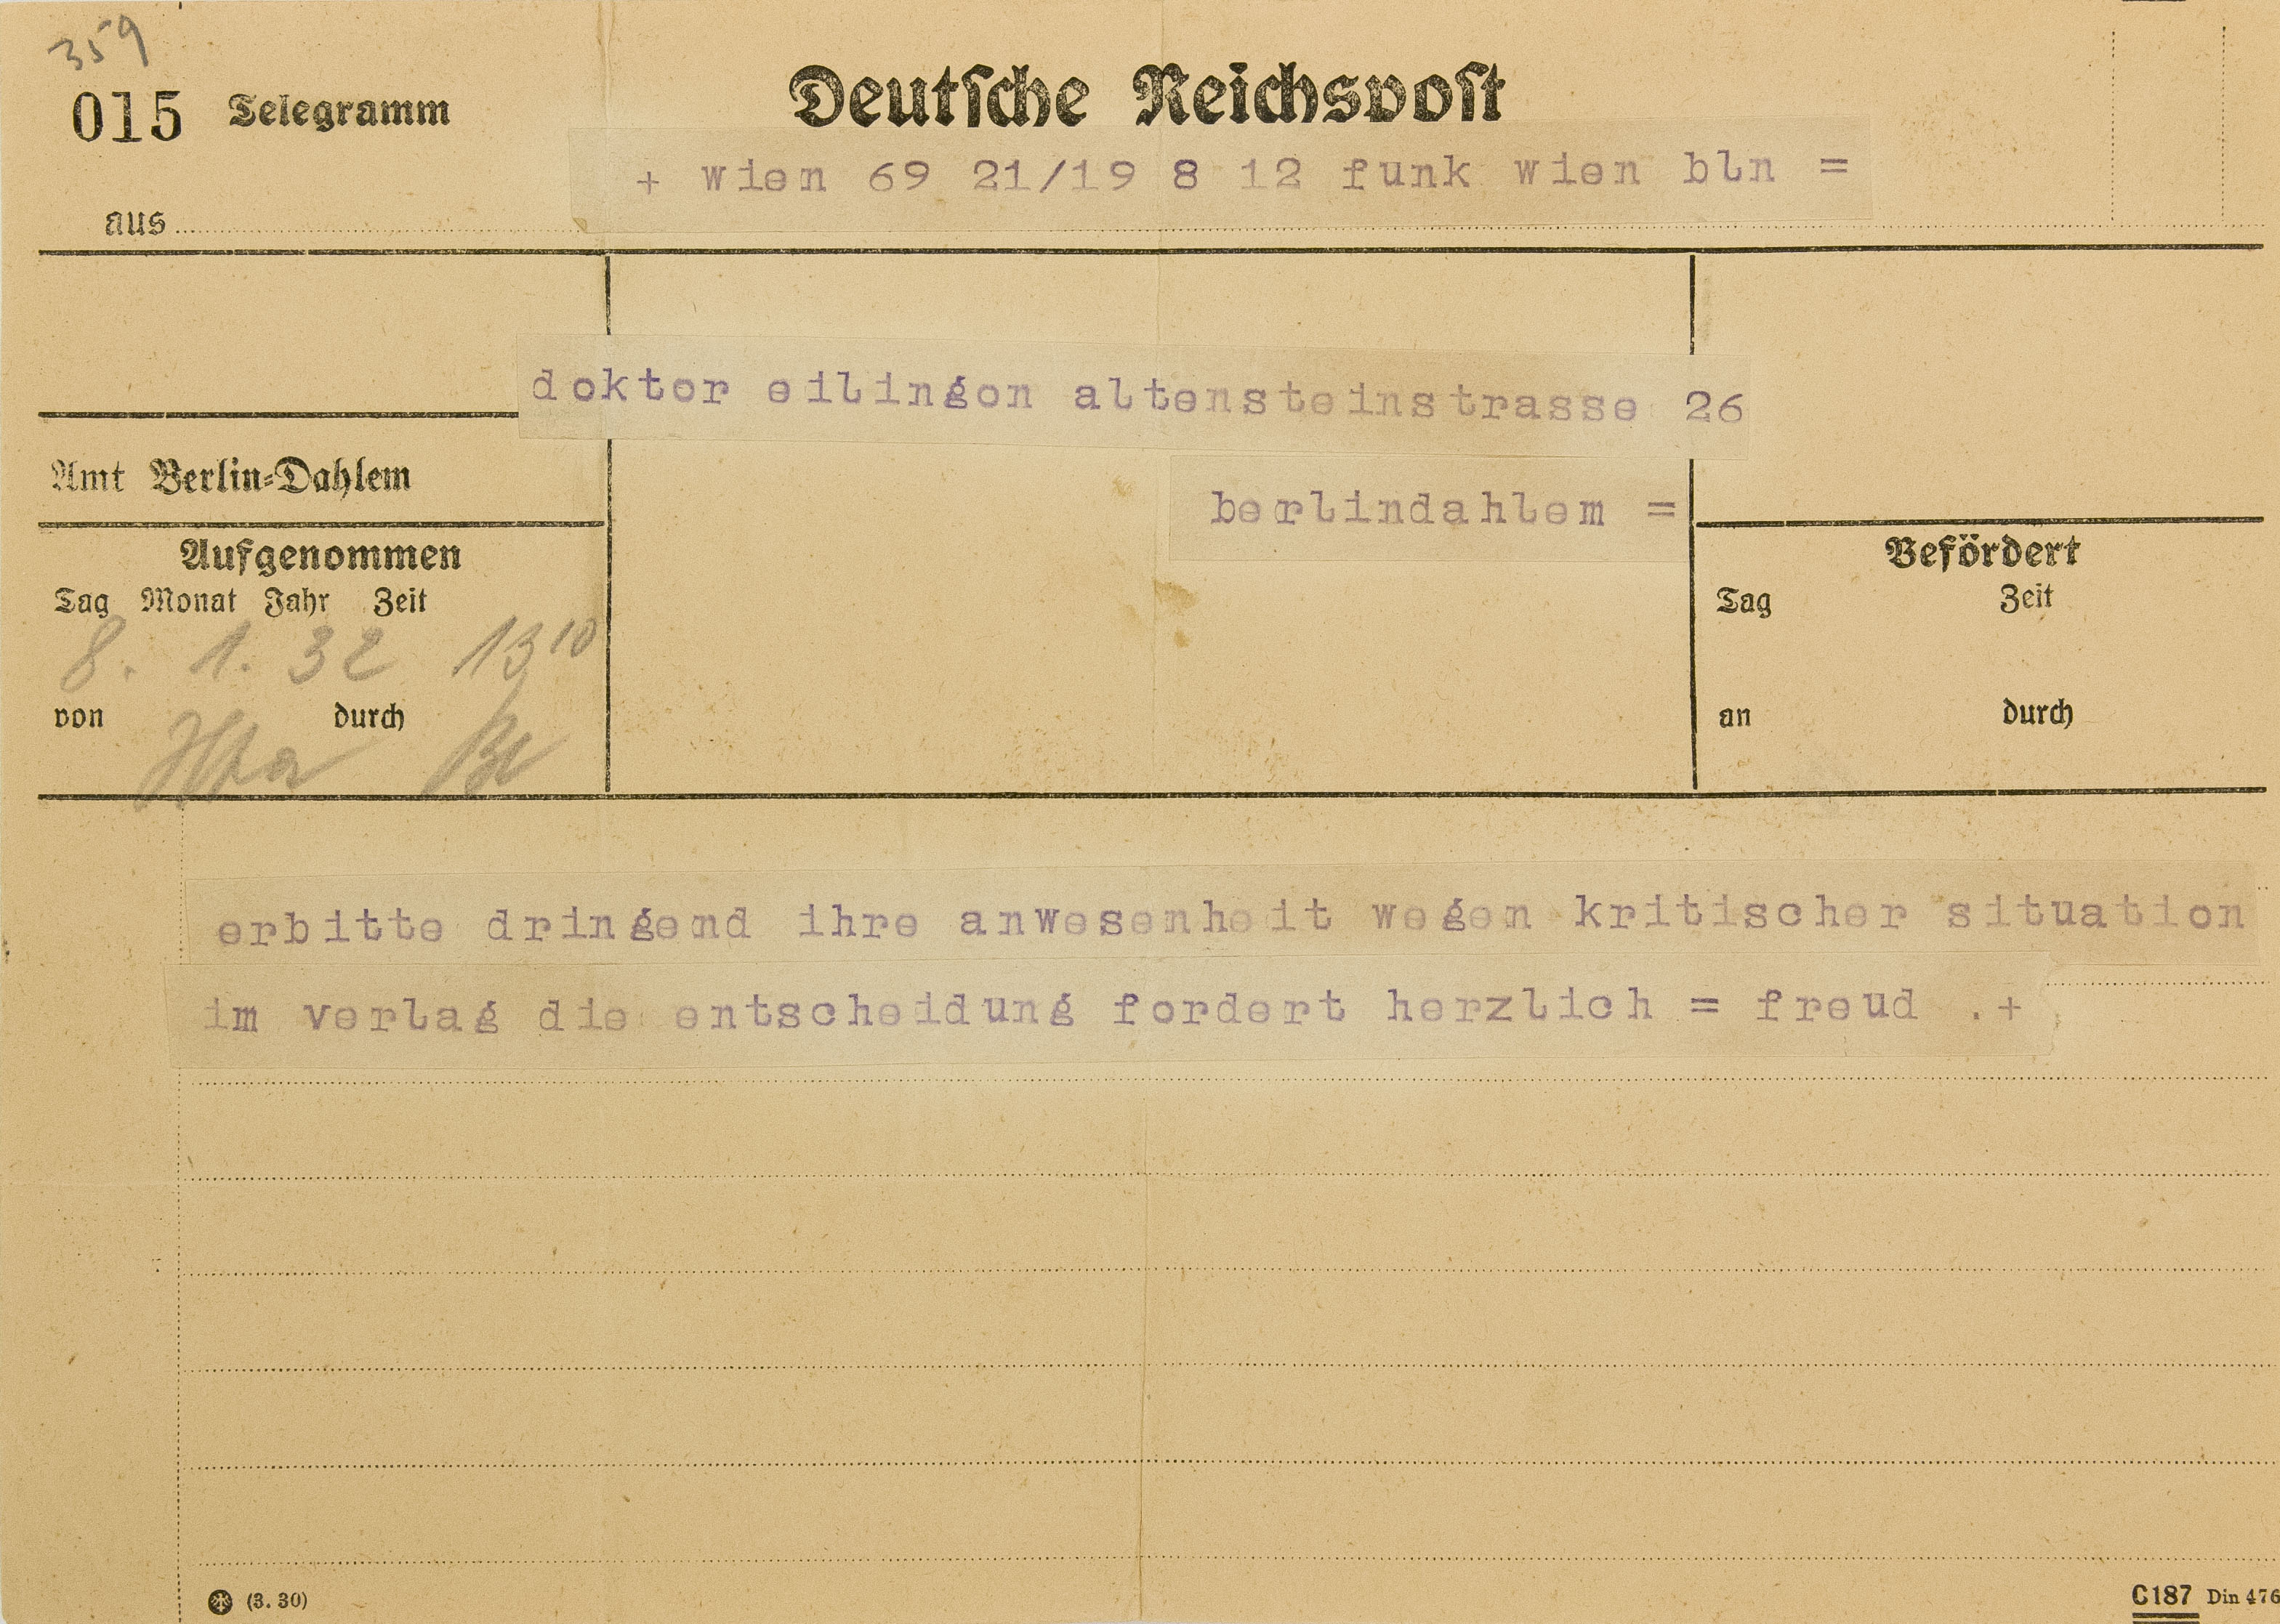 359
015 Telegramm Deutsche Reichspost
+ wien 69 21/19 8 12 funk wien bln =
aus
doktor eilingon altensteinstrasse 26
Amt Berlin-Dahlem
berlindahlem =
Aufgenommen
Befördert
Tag Monat Jahr Zeit
Tag Zeit
8. 1. 32 13 10
von durch
an durch
erbitte dringend ihre anwesenheit wegen kritischer situation
im verlag die entscheidung fordert herzlich = freud .+
(3. 30)
C187 Din 476